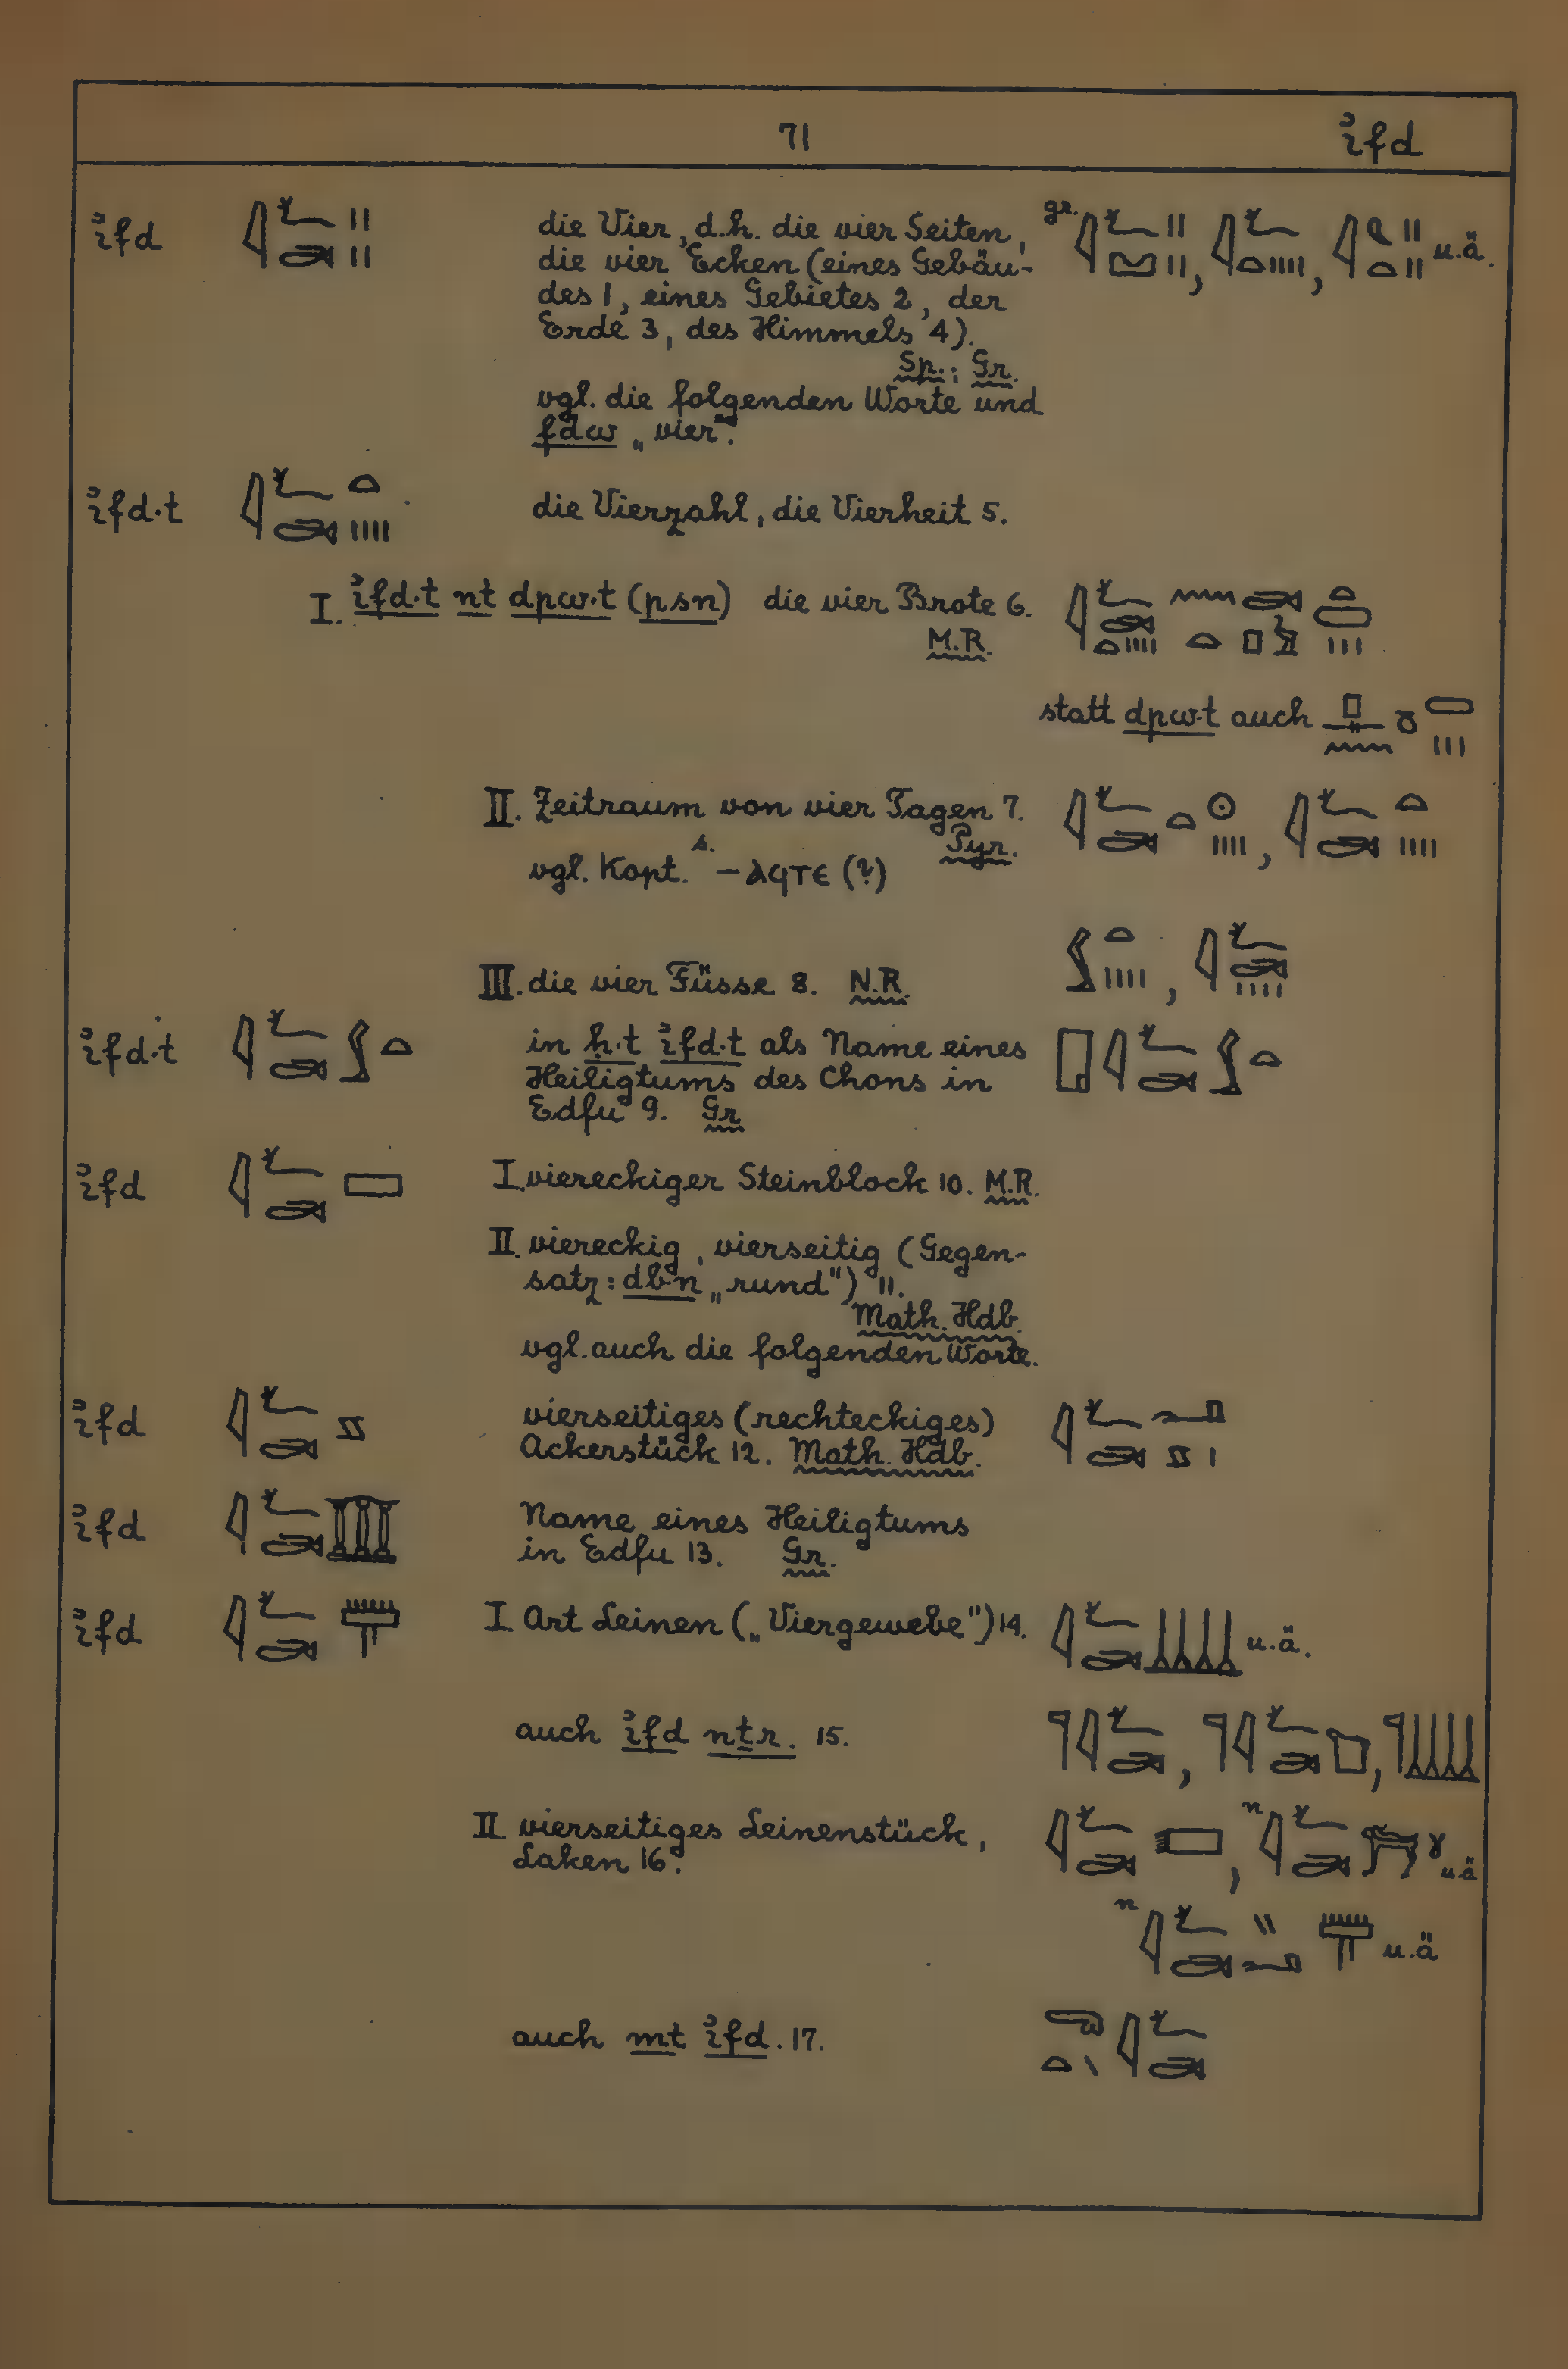 71 ỉfd
ỉfd die Vier, d.h. die vier Seiten, gr. u.ä.
die vier Ecken (eines Gebäu-
des 1, eines Gebietes 2, der
Erde 3, des Himmels 4).
Sp.; Gr.
vgl. die folgenden Worte und
fdw „vier".
ỉfd·t die Vierzahl, die Vierheit 5.
I. ỉfd·t nt dpw·t (psn) die vier Brote 6.
M.R.
statt dpw·t auch
II. Zeitraum von vier Tagen 7.
Pyr.
vgl. Kopt. s. –ⲁϥⲧⲉ (?)
III. die vier Füsse 8. N.R.
ỉfd·t in ḥ·t ỉfd·t als Name eines
Heiligtums des Chons in
Edfu 9. Gr
ỉfd I. viereckiger Steinblock 10. M.R.
II. viereckig, vierseitig (Gegen-
satz: dbn „rund") 11.
Math. Hdb.
vgl. auch die folgenden Worte.
ỉfd vierseitiges (rechteckiges)
Ackerstück 12. Math. Hdb.
ỉfd Name eines Heiligtums
in Edfu 13. Gr.
ỉfd I. Art Leinen („Viergewebe") 14. u.ä.
auch ỉfd nṯr. 15.
II. vierseitiges Leinenstück, n u.ä
Laken 16.
n u.ä
auch mt ỉfd. 17.